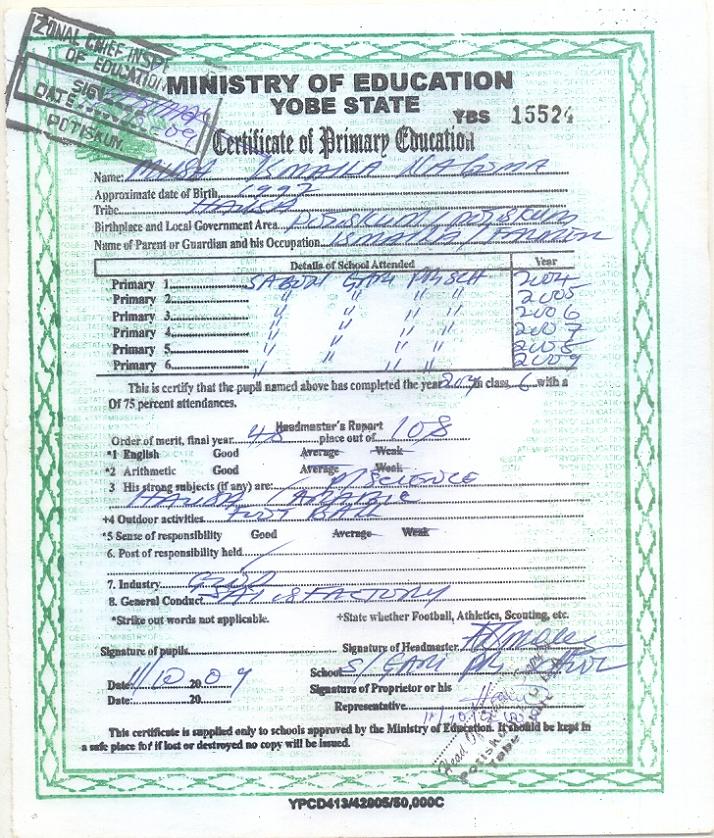 ZONAL CHIEF INSPE
OF EDUCATION
SIGN
DATE
POTISKUM
MINISTRY OF EDUCATION
YOBE STATE
YBS 15524
Certificate of Primary Education
Name:
Approximate date of Birth 1997
Tribe HAUSA
Birthplace and Local Government Area POTISKUM / POTISKUM
Name of Parent or Guardian and his Occupation / FARMER
Details of School Attended Year
Primary 1. SABON GARI PRI SCH 2004
Primary 2. " " " " 2005
Primary 3. " " " " 2006
Primary 4. " " " " 2007
Primary 5. " " " " 2008
Primary 6. " " " " 2009
This is certify that the pupil named above has completed the year 2009 in class 6 with a
Of 75 percent attendances.
Headmaster's Report
Order of merit, final year 48 place out of 108
*1 English Good Average Weak
*2 Arithmetic Good Average Weak
3 His strong subjects (if any) are: P/SCIENCE
HAUSA / ARABIC
+4 Outdoor activities FOOT BALL
*5 Sense of responsibility Good Average Weak
6. Post of responsibility held
7. Industry GOOD
8. General Conduct SATISFACTORY
*Strike out words not applicable. +State whether Football, Athletics, Scouting, etc.
Signature of pupils Signature of Headmaster
School S/GARI PRI SCHOOL
Date 11/10 20 09 Signature of Proprietor or his
Date 20 Representative
This certificate is supplied only to schools approved by the Ministry of Education. It should be kept in
a safe place for if lost or destroyed no copy will be issued.
YPCD413/42005/50,000C